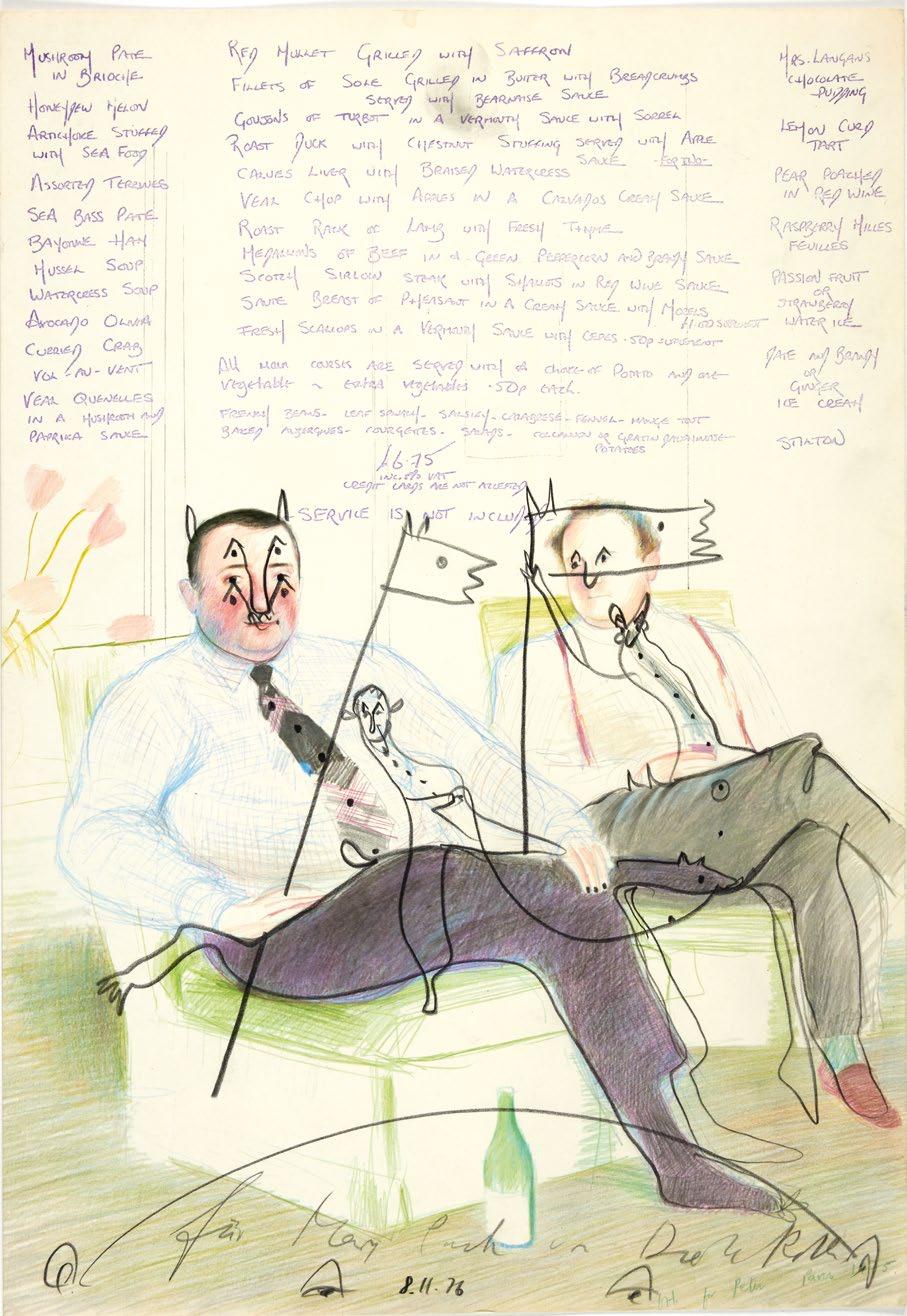 MUSHROOM PATE
IN BRIOCHE
HONEYDEW MELON
ARTICHOKE STUFFED
WITH SEA FOOD
ASSORTED TERRINES
SEA BASS PATE
BAYONNE HAM
MUSSEL SOUP
WATERCRESS SOUP
AVOCADO OLIVIA
CURRIED CRAB
VOL-AU-VENT
VEAL QUENELLES
IN A MUSHROOM AND
PAPRIKA SAUCE
RED MULLET GRILLED WITH SAFFRON
FILLETS OF SOLE GRILLED IN BUTTER WITH BREADCRUMBS
SERVED WITH BEARNAISE SAUCE
GOUJONS OF TURBOT IN A VERMOUTH SAUCE WITH SORREL
ROAST DUCK WITH CHESTNUT STUFFING SERVED WITH APPLE
SAUCE -FOR TWO-
CALVES LIVER WITH BRAISED WATERCRESS
VEAL CHOP WITH APPLES IN A CALVADOS CREAM SAUCE
ROAST RACK OF LAMB WITH FRESH THYME
MEDALLIONS OF BEEF IN A GREEN PEPPERCORN AND BRANDY SAUCE
SCOTCH SIRLOIN STEAK WITH SHALLOTS IN RED WINE SAUCE
SAUTE BREAST OF PHEASANT IN A CREAM SAUCE WITH MORELS
FRESH SCALLOPS IN A VERMOUTH SAUCE WITH CEPES · 50p SUPPLEMENT
All MAIN COURSES ARE SERVED WITH A CHOICE OF POTATO AND ONE
VEGETABLE ~ EXTRA VEGETABLES · 50p EACH.
FRENCH BEANS - LEAF SPINACH - SALSIFY - CALABRESE - FENNEL - MANGE TOUT
BAKED AUBERGINES - COURGETTES - SALADS - COLCANNON OR GRATIN DAUPHINOISE
POTATOES
£6.75
INC. 8% VAT
CREDIT CARDS ARE NOT ACCEPTED
SERVICE IS NOT INCLUDED
MRS. LANGANS
CHOCOLATE
PUDDING
LEMON CURD
TART
PEAR POACHED
IN RED WINE
RASPBERRY MILLES
FEUILLES
PASSION FRUIT
OR
STRAWBERRY
WATER ICE
DATE AND BRANDY
OR
GINGER
ICE CREAM
STILTON
für
8.11.76
for Peter